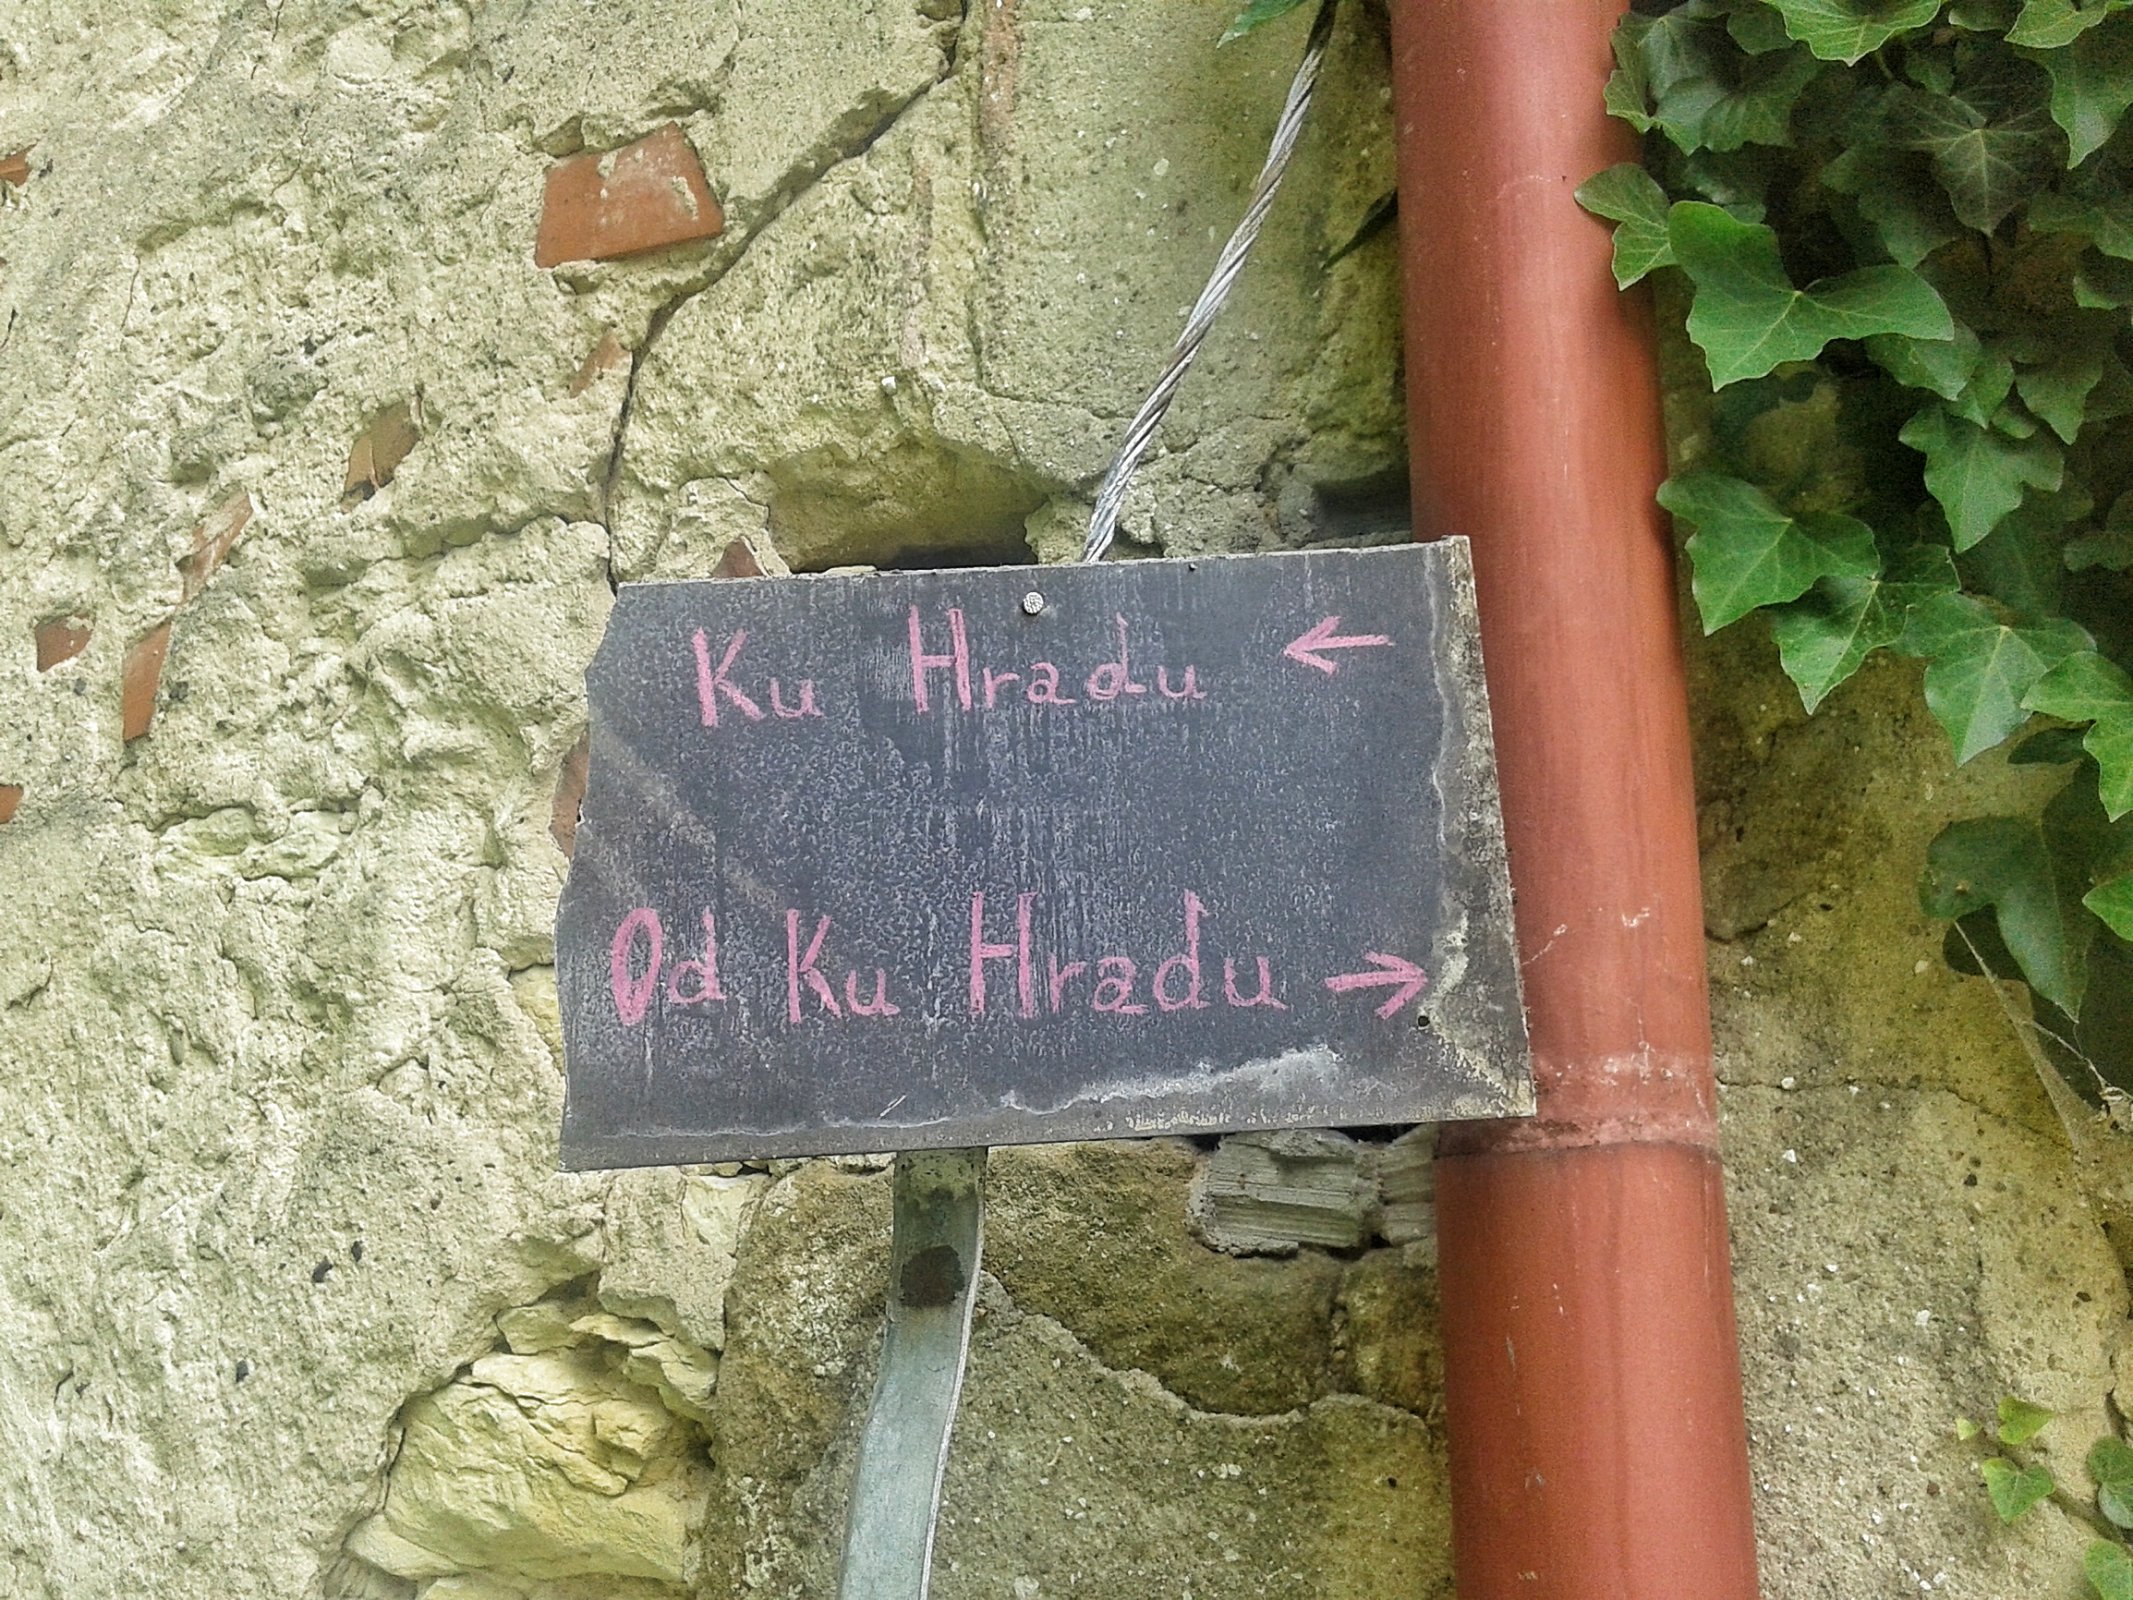 Ku Hradu ←
Od Ku Hradu →